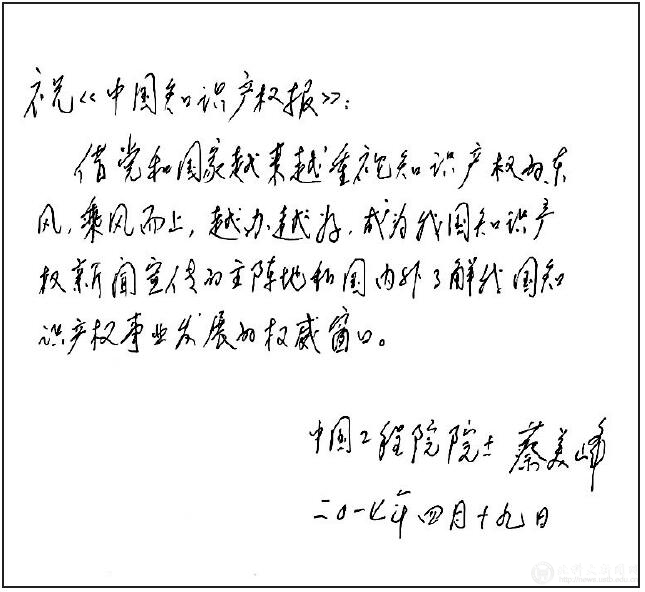 祝《中国知识产权报》:
借党和国家越来越重视知识产权的东
风,乘风而上,越办越好,成为我国知识产
权新闻宣传的主阵地和国内外了解我国知
识产权事业发展的权威窗口。
中国工程院院士 蔡美峰
二〇一七年四月十九日